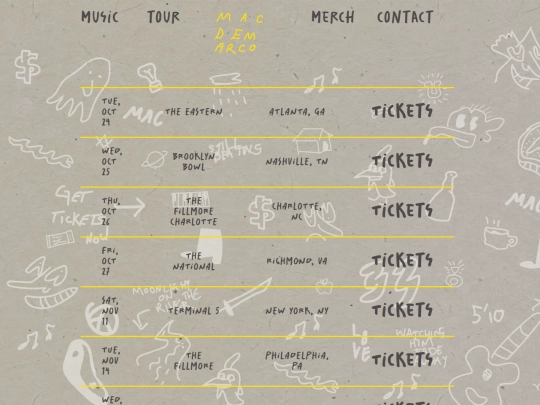 MUSIC TOUR MAC DEM ARCO MERCH CONTACT
TUE, OCT 24 THE EASTERN ATLANTA, GA TICKETS
MAC
WED, OCT 25 BROOKLYN BOWL NASHVILLE, TN TICKETS
STILL BEATING
THU, OCT 26 THE FILLMORE CHARLOTTE CHARLOTTE, NC TICKETS
GET TICKETS NOW
MAC
FRI, OCT 27 THE NATIONAL RICHMOND, VA TICKETS
MOONLIGHT ON THE RIVER
SAT, NOV 11 TERMINAL 5 NEW YORK, NY TICKETS
5'10
LOVE
WATCHING HIM FADE AWAY
TUE, NOV 14 THE FILLMORE PHILADELPHIA, PA TICKETS
WED,